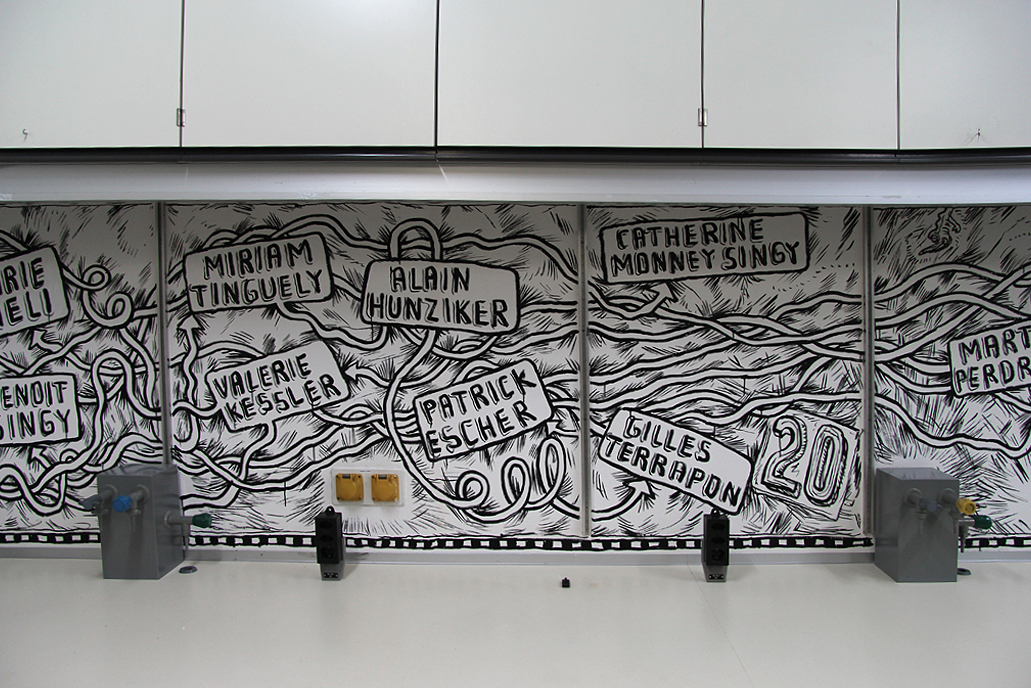 MIRIAM
TINGUELY
ALAIN
HUNZIKER
CATHERINE
MONNEY SINGY
VALERIE
KESSLER
ENOIT
SINGY
PATRICK
ESCHER
GILLES
TERRAPON
20
MART
PERDR